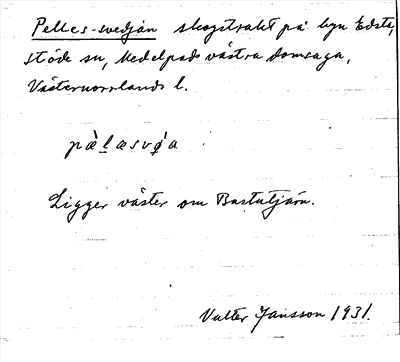 Pelles-svedjan skogstrakt på byn Edsta,
Stöde sn, Medelpads västra domsaga,
Västernorrlands l.
pæ̀læsvø̀a
Ligger väster om Bastutjärn.
Valter Jansson 1931.